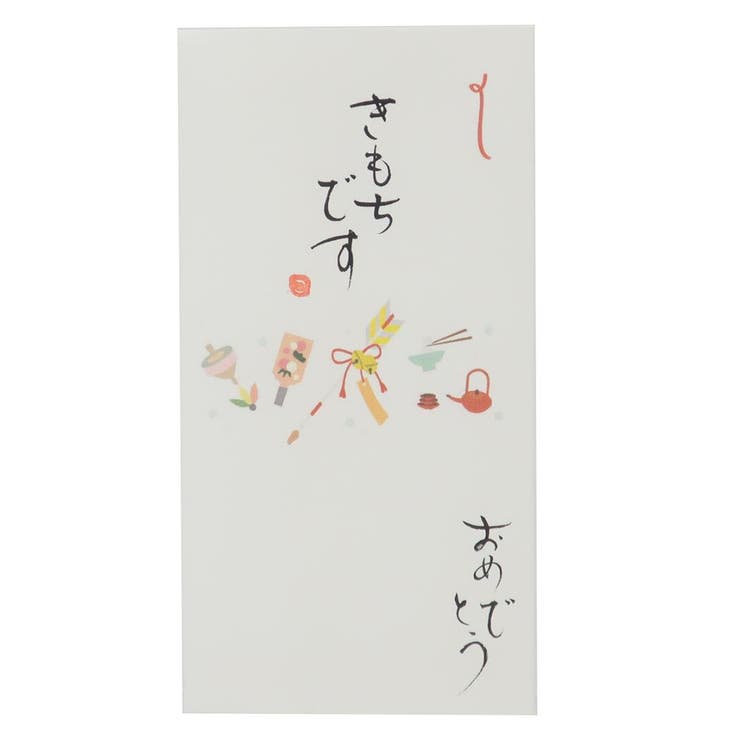 きもち
です
おめで
とう